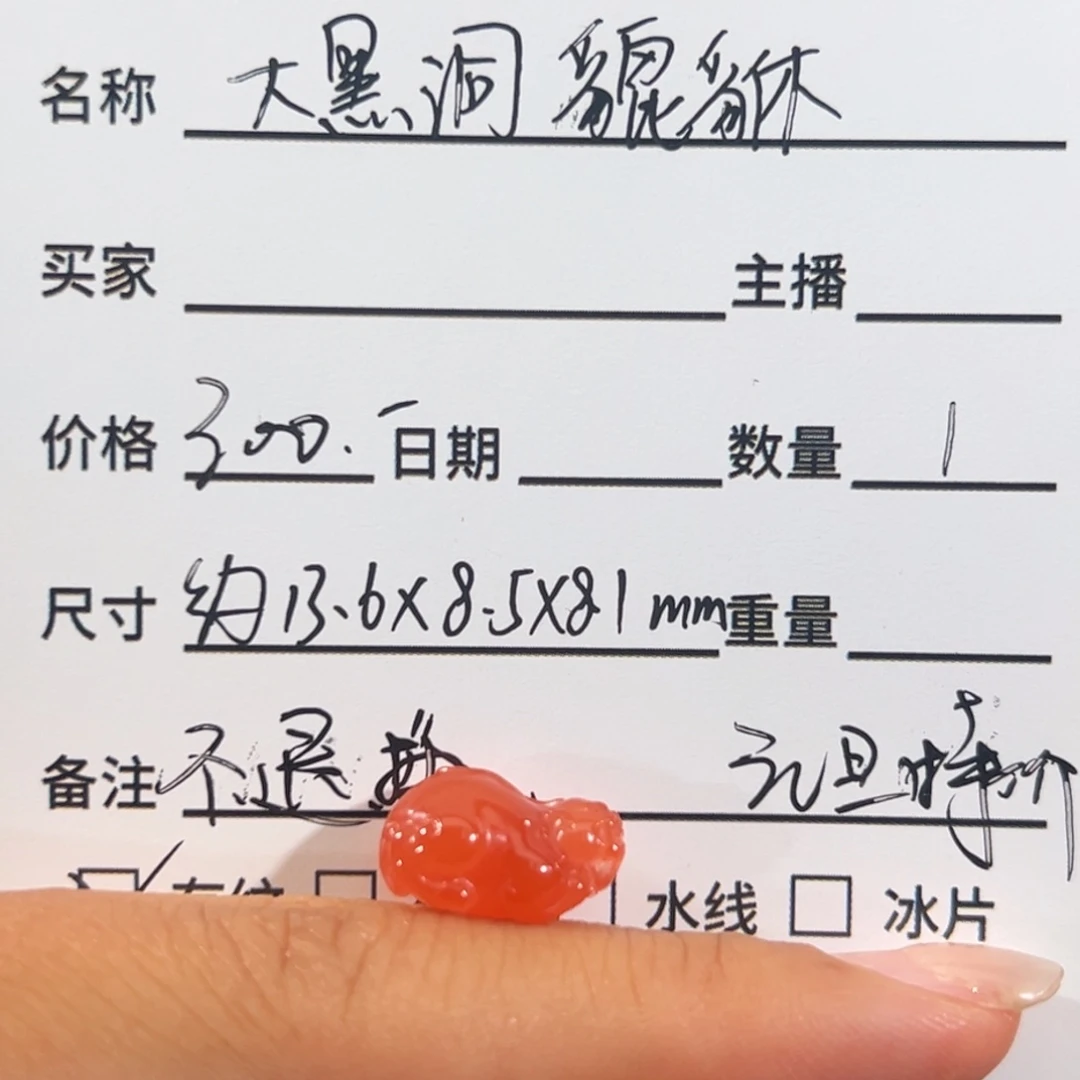 名称 大黑洞 貔貅
买家 主播
价格 300. 日期 数量 1
尺寸 约13.6X8.5X8.1mm 重量
备注 不退 元旦特价
水线 冰片